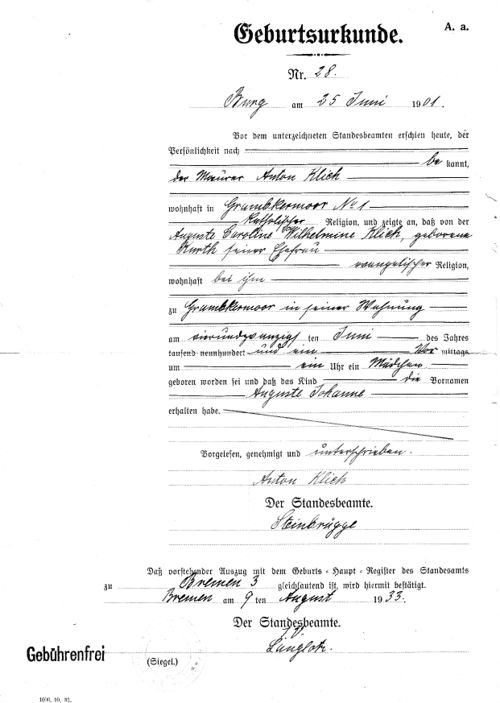 Geburtsurkunde.
A. a.
Nr. 28.
Burg am 25 Juni 1901.
Vor dem unterzeichneten Standesbeamten erschien heute, der
Persönlichkeit nach
be kannt,
der Maurer Anton Klich
wohnhaft in Grambkermoor No 1
Katholischer Religion, und zeigte an, daß von der
Auguste Caroline Wilhelmine Klich, geborene
Kurth seiner Ehefrau
evangelischer Religion,
wohnhaft bei ihm
zu Grambkermoor in seiner Wohnung
am vierundzwanzig ten Juni des Jahres
tausend neunhundert und ein Vor mittags
um ein Uhr ein Mädchen
geboren worden sei und daß das Kind die Vornamen
Auguste Johanne
erhalten habe.
Vorgelesen, genehmigt und unterschrieben.
Anton Klich
Der Standesbeamte.
Steinbrügge
Daß vorstehender Auszug mit dem Geburts-Haupt-Register des Standesamts
zu Bremen 3 gleichlautend ist, wird hiermit bestätigt.
Bremen am 9 ten August 1933.
Der Standesbeamte.
J.V.
Gebührenfrei
(Siegel.)